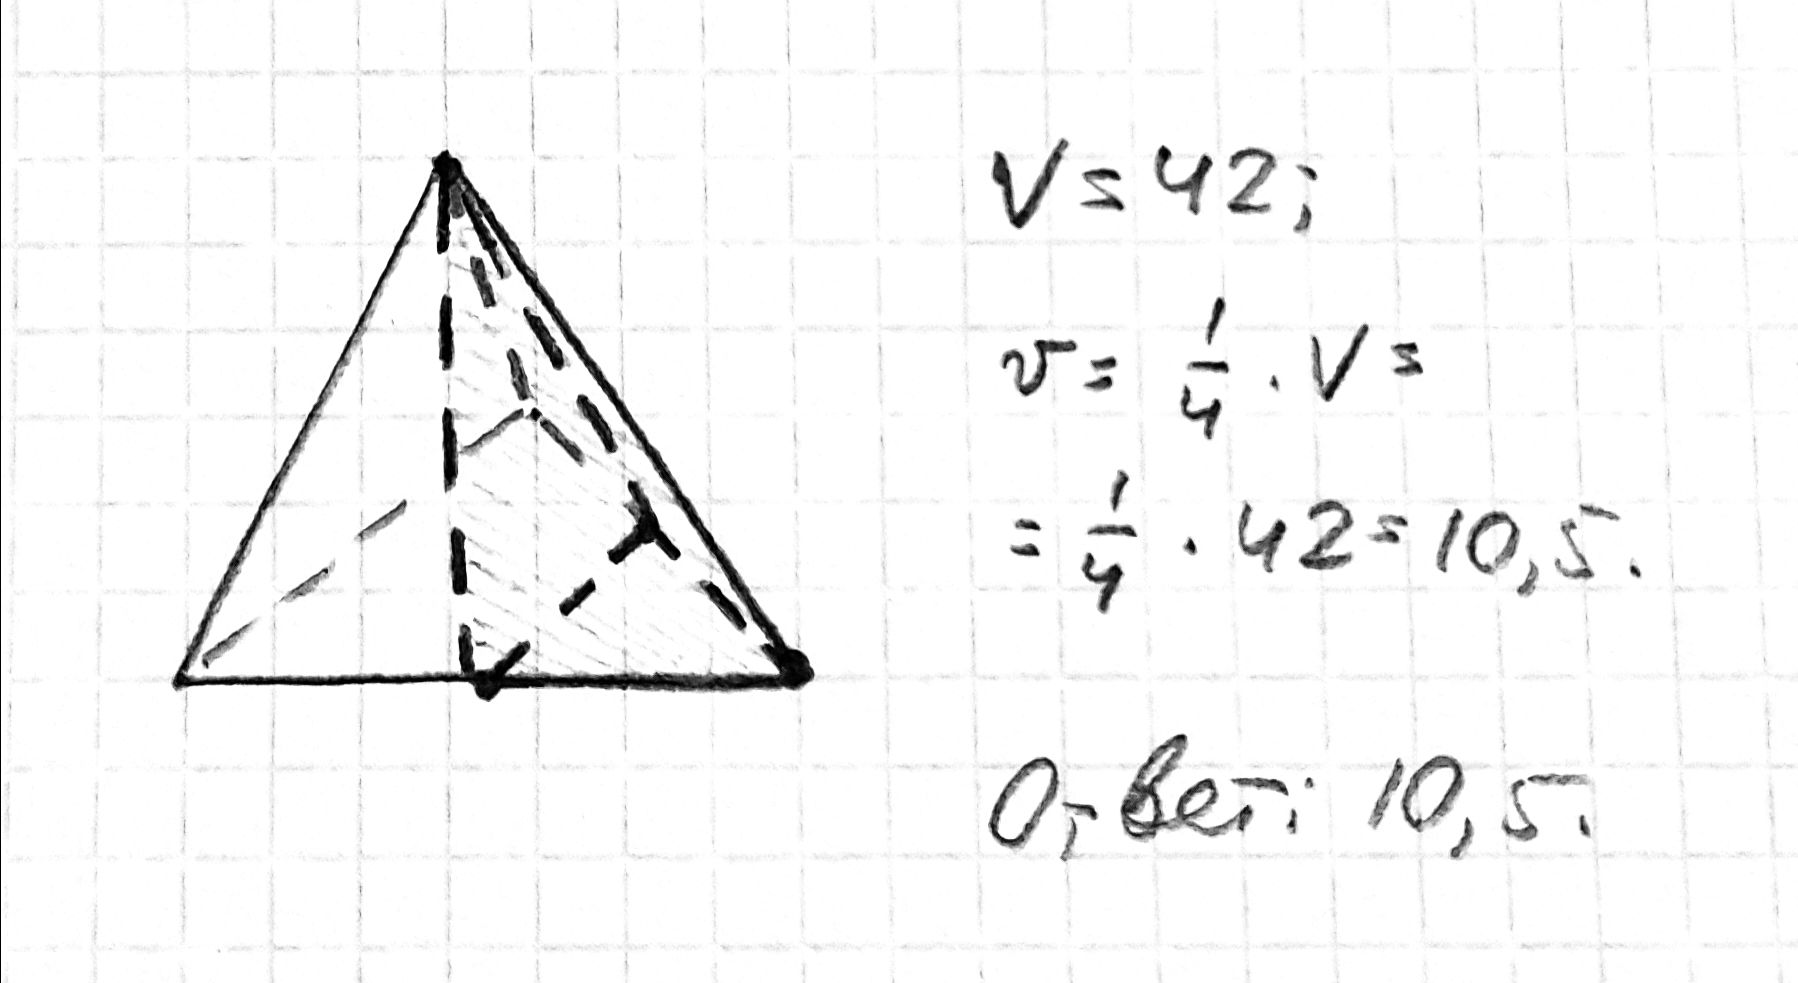 V = 42;
v = 1/4 · V =
= 1/4 · 42 = 10,5.
Ответ: 10,5.